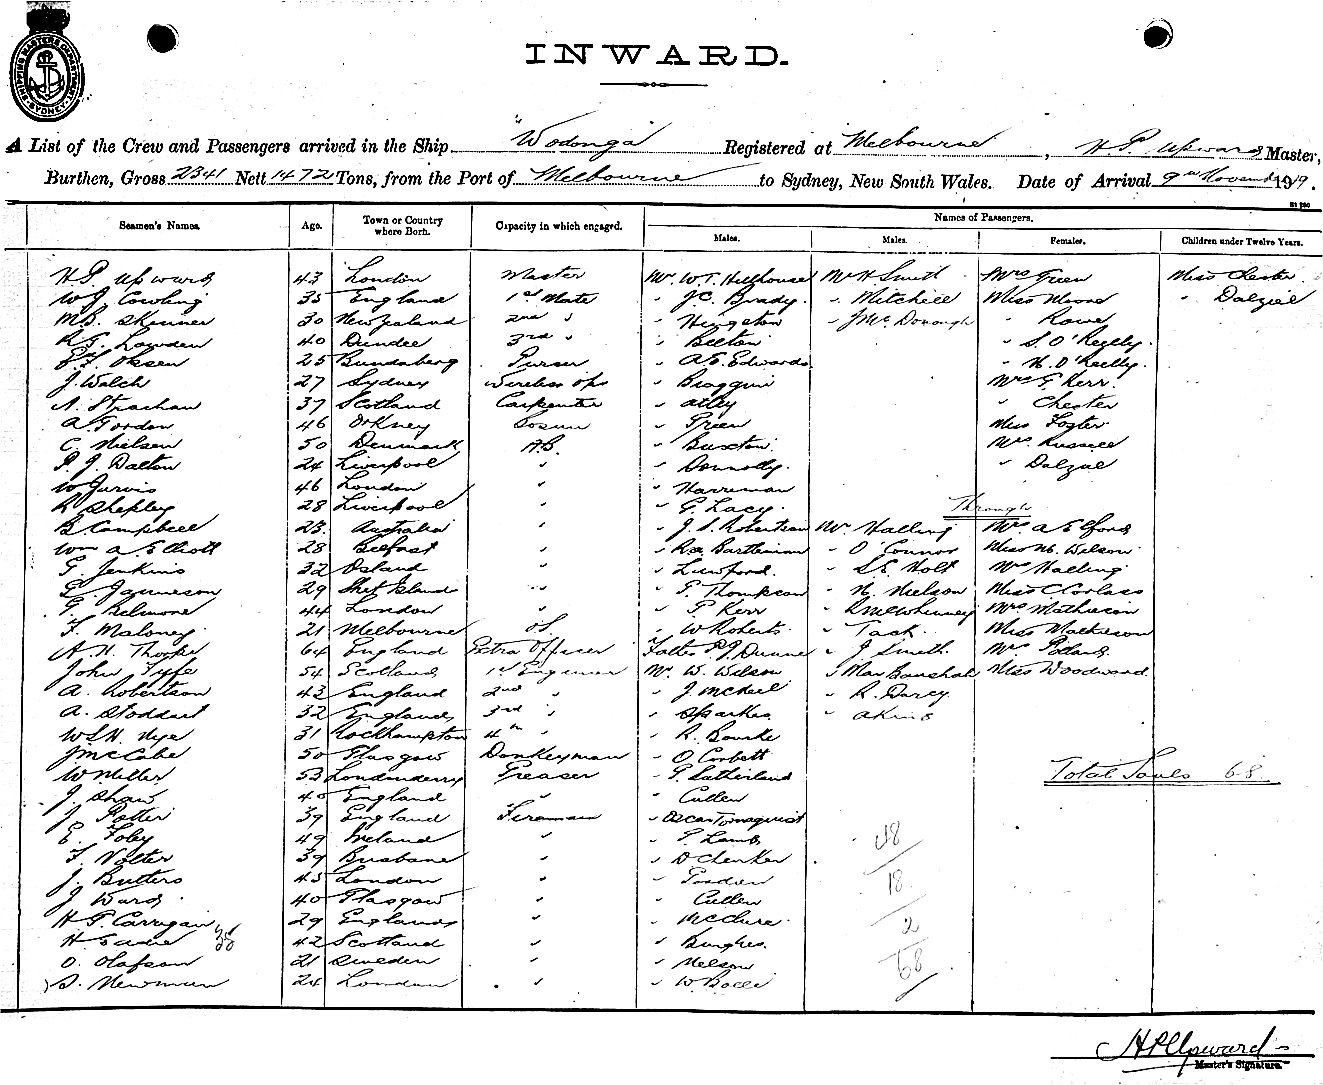 SHIPPING MASTER'S DEPARTMENT SYDNEY
INWARD.
A List of the Crew and Passengers arrived in the Ship "Wodonga" Registered at Melbourne, H.P. Upward Master,
Burthen, Gross 2341 Nett 1472 Tons, from the Port of Melbourne to Sydney, New South Wales. Date of Arrival 9th Novemb 1919.
Names of Passengers.
Seamen's Names. Age. Town or Country where Born. Capacity in which engaged. Males. Males. Females. Children under Twelve Years.
H.P. Upward 43 London Master Mr W.T. Hillhouse Mr H Smith Mrs Green Miss Chester
W J Cowling 35 England 1st Mate " J.C. Brady " Mitchell Miss Moore " Dalziel
M.B. Skinner 30 New Zealand 2nd " " Kingston " J McDonough " Rowe
Lowden 40 Dundee 3rd " " Belton " S. O'Reilly
Olsen 25 Bundaberg Purser " A.E. Edwards " N. O'Reilly
J. Walch 27 Sydney Wireless Op " Mrs G. Kerr
A. Strachan 37 Scotland Carpenter " Alley " Chester
A Gordon 46 Orkney Bosun " Green Miss Foster
C. Nielsen 50 Denmark A.B. " Buxton Mrs Russell
P.J. Dalton 24 Liverpool " " Donnolly " Dalziel
W Jarvis 46 London " " Harriman
R Shepley 28 Liverpool " " G. Lacy Through
B Campbell 23 Australia " " J.S. Robertson Mr Halling Mrs A Elford
Wm A Elliott 28 Belfast " " Bartleman " O'Connor Miss M. Wilson
G Jenkins 32 " " " S.E. Holt Mrs Halling
E Jamieson 29 Shet Island " " G. Thompson " N. Nielson Miss C Corlass
G. Belmore 44 London " " P Kerr " R McWhinney Mrs Mathieson
F. Maloney 21 Melbourne OS " W Roberts " Tack Miss Mathieson
A.H. Thorpe 64 England Extra Officer Father P.J. Dunne " J Smith Mrs Pollard
John Fyfe 54 Scotland 1st Engineer Mr W. Wilson " Miss Woodward
A. Robertson 43 England 2nd " " J. McNeil " R. Darcy
A. Stoddart 32 England 3rd " " Sparkes " Akins
W.S.H. Nye 31 Rockhampton 4th " " R. Bourke
J McCabe 50 Glasgow Donkeyman " O Corbett
W Miller 53 Londonderry Greaser " G. Sutherland Total Souls 68
J. Shaw 40 England " " Cullen
J Potter 39 England Fireman " Oscar Tornaquist
E. Foley 49 Ireland " " P. Lamb 48
F. Nolter 39 Brisbane " " D Clenker
J. Butters 45 London " " 18
J Ward 40 Glasgow " " Cullen
H.P. Carrigan 29 England " " McClure 2
H Eadie 35 42 Scotland " " Burghes
O. Olafson 21 Sweden " " Nelson 68
S. Newman 24 London " " W
H P Upward
Master's Signature.